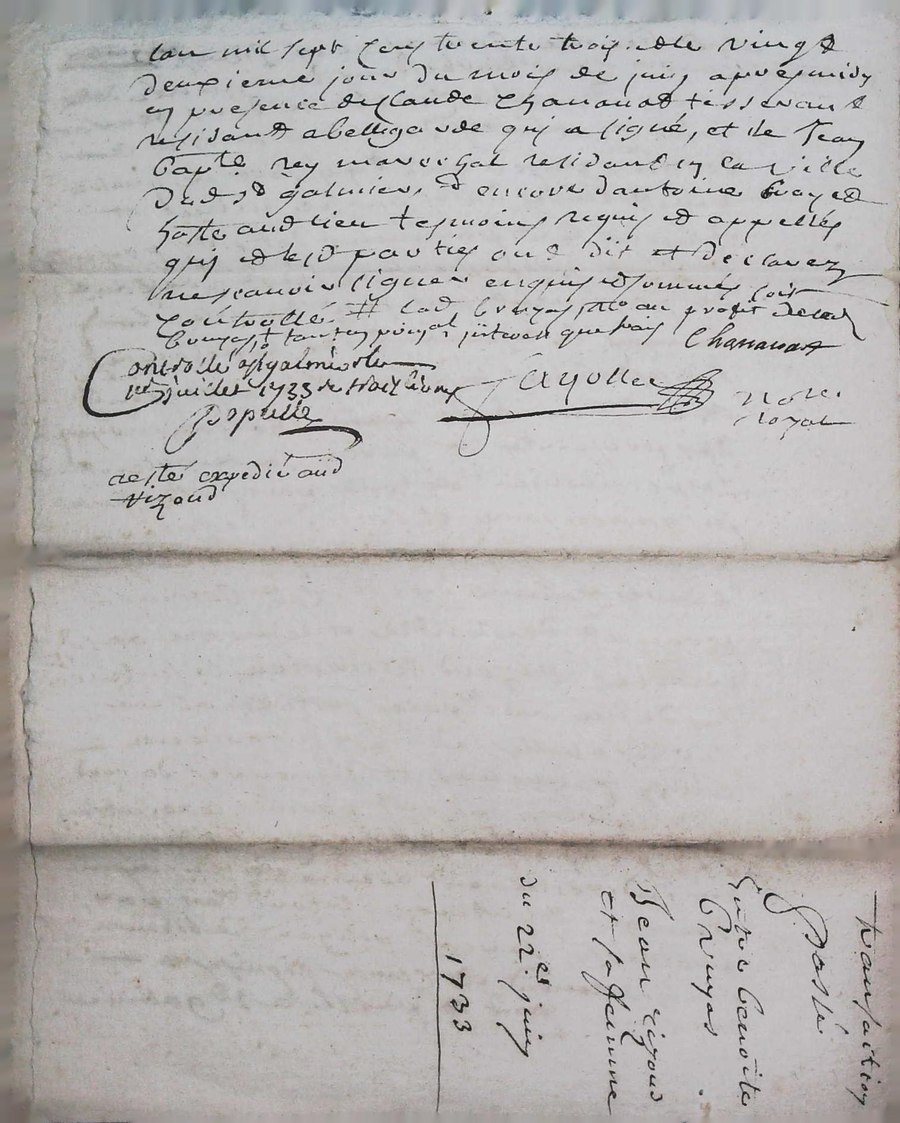 lan mil sept cens trente trois et le vingt
deuxieme jour du mois de juin apres midy
en presence de Claude Chanavat tisserant
residant a bellegarde qui a signé, et de Jean
bapte. rey mareschal residant en la ville
dud. st galmier, et encore dantoine
hoste aud lieu tesmoins requis et appellés
qui et lesd parties ont dit et declarez
ne scavoir signer enquis et sommés soit
controllé # lad au profit de lad
Chanavat
Controllé a st galmier le
1er juillet 1733 de
fayolle
nore.
royal
aeste expedié aud
rizoud
transaction
passé
Entre benoite
bruyas
& Jean rizoud
et sa femme
du 22e. juin
1733